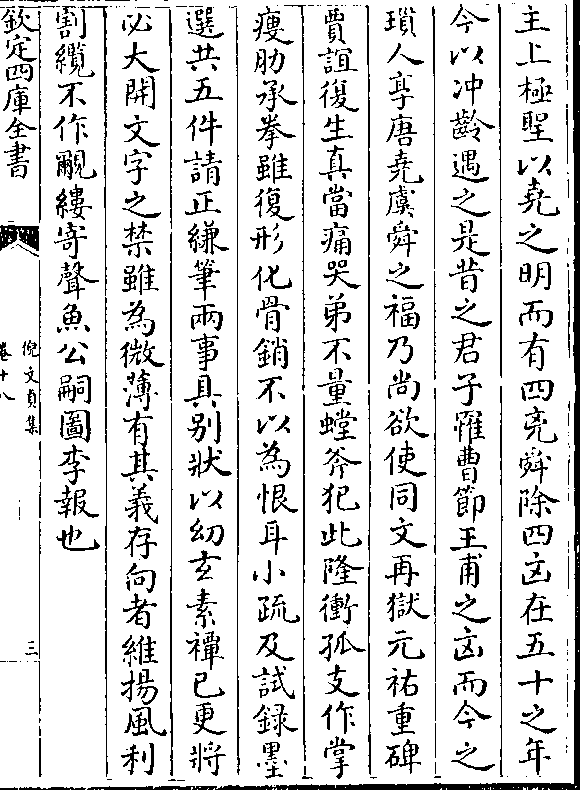 主上極聖以堯之明而有四亮舜除四凶在五十之年
今以冲齡遇之是昔之君子罹曹節王甫之凶而今之
𤨏人享唐堯虞舜之福乃尚欲使同文再獄元祐重碑
賈誼復生真當痛哭弟不量螳斧犯此隆衝孤支作掌
瘦肋承拳雖復形化骨銷不以為恨耳小疏及試録墨
選共五件請正縑筆兩事具别狀以幼𤣥素禫已更將
必大開文字之禁雖為微薄有其義存向者維揚風利
割纜不作覼縷寄聲魚公嗣圖李報也
欽定四庫全書
倪文貞集
卷十八
三